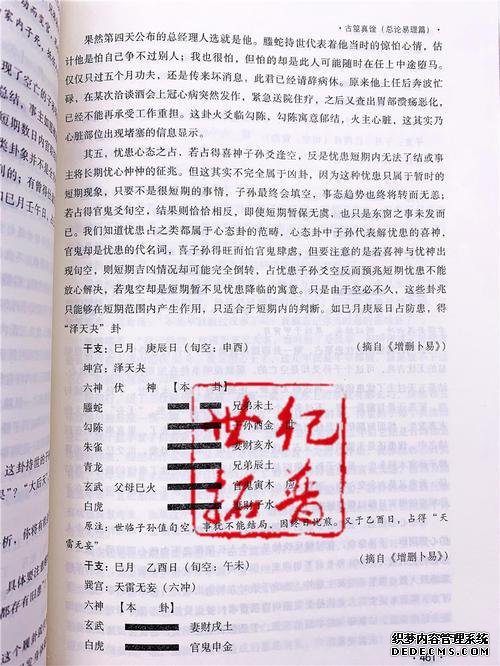 · 古筮真诠（总论易理篇）·
果然第四天公布的总经理人选就是他。螣蛇持世代表着他当时的惊怕心情，估
计他是怕自己争不过别人；我也很怕，但怕的却是此人可能随时在任上中途堕马。
仅仅只过五个月功夫，还是传来坏消息，此君已经请辞病休。原来他上任后奔波忙
碌，在某次洽谈酒会上冠心病突然发作，紧急送院住疗，之后又查出胃部溃疡恶化，
已经不能再承受工作重担。这卦火爻临勾陈，勾陈寓意郁结，火主心脏，这其实乃
心脏部位出现堵塞的信息显示。
其五，忧患心态之占，若占得喜神子孙爻逢空，反是忧患短期内无法了结或事
主将长期忧心忡忡的征兆。但这其实不完全属于凶卦，因为这种忧患只属于暂时的
短期现象，只要不是很短期的事情，子孙最终会填空，事态趋势也终将转而无恙；
若占得官鬼爻旬空，结果则恰恰相反，即使短期暂保无虞，也只是东窗之事未发而
已。我们知道忧患占之类都属于心态卦的范畴，心态卦中子孙代表解忧患的喜神，
官鬼却是忧患的代名词，喜子孙得旺而怕官鬼肆虐，但要注意的是若喜神与忧神出
现旬空，则短期吉凶情况却可能完全倒转，占忧患子孙爻空反而预兆短期忧患不能
放心解决，若鬼空却是短期暂不见忧患降临的寓意。只是由于空必不久，这些卦兆
只能够在短期范围内产生作用，只适合于短期内的判断。如巳月庚辰日占防患，得
“泽天夬”卦
干支：巳月 庚辰日（旬空：申酉） （摘自《增删卜易》）
坤宫：泽天夬
六神 伏 神 【本 卦】
螣蛇 兄弟未土
勾陈 子孙酉金 世
朱雀 妻财亥水
青龙 兄弟辰土
玄武 父母巳火 官鬼寅木
白虎 妻财子水
原注：世临子孙值旬空，事犹不能结局，因终日忧煎。又于乙酉日，占得“天
雷无妄”
干支：巳月 乙酉日（旬空：午未） （摘自《增删卜易》）
巽宫：天雷无妄（六冲）
六神 【本 卦】
玄武 妻财戌土
白虎 官鬼申金
世纪
拓普
织梦内容管理系统
DEDECMS.COM